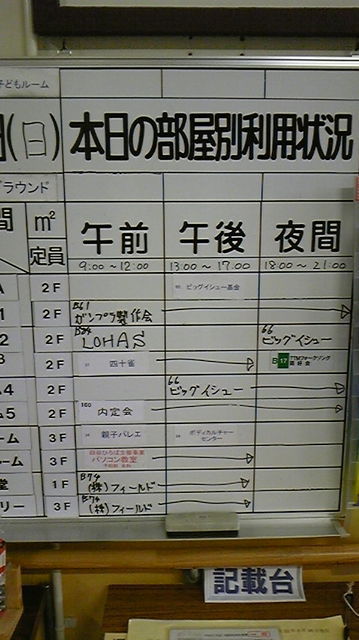 子どもルーム
(日) 本日の部屋別利用状況
ラウンド
間 m² 定員 午前 午後 夜間
9:00～12:00 13:00～17:00 18:00～21:00
A 2F ビッグイシュー基金
1 2F B61 ガンプラ製作会
2 2F LOHAS 66 ビッグイシュー
3 2F 四十雀 B 17 TTMフォークソング愛好会
A4 2F 66 ビッグイシュー
ム5 2F 160 内定会
ーム 3F 親子バレエ ボディカルチャーセンター
ルーム 3F パソコン教室
堂 1F B74 (株)フィールド
リー 3F B74 (株)フィールド
記載台